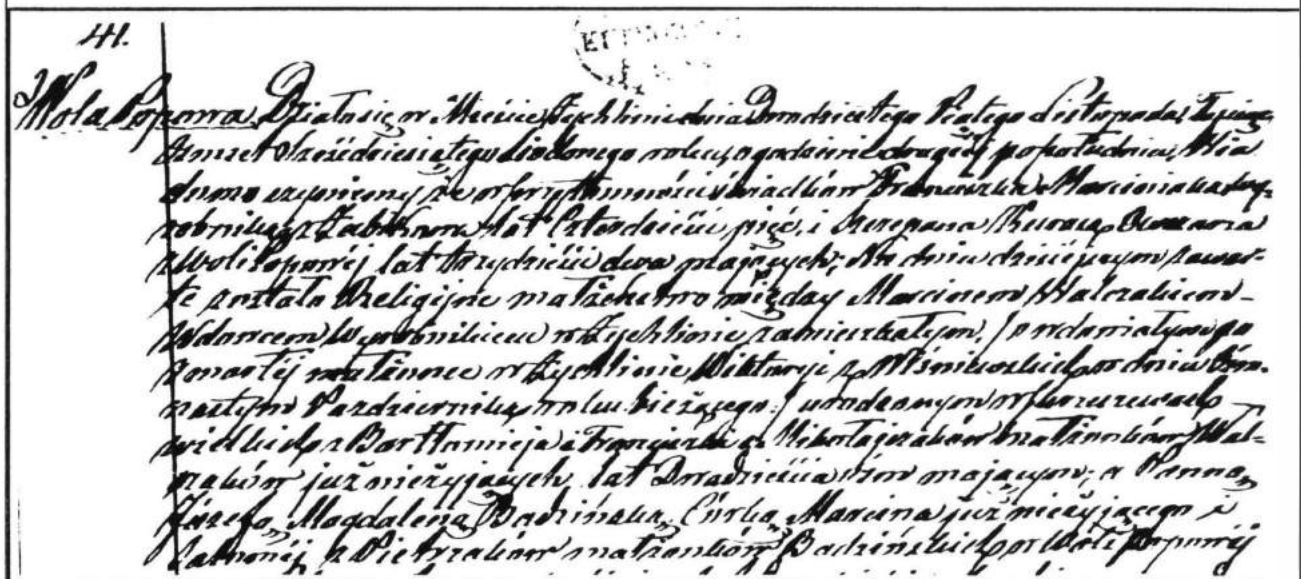 41.
Wola Popowa Działo się w Mieście Żychlinie dnia Dwudziestego Piątego Listopada, Tysiąc
Ośmset Sześćdziesiątego Siódmego roku, o godzinie drugiéj popołudniu, Wia
domo czyniemy że w przytomności świadków Franciszka Marciniaka wy-
robnika z lat Czterdzieści pięć, i Szczepana Owczarza
z Woli Popowéj lat trzydzieści dwa mających; Na dniu dzisiejszym zawar-
te zostało Religijne małżeństwo między Marcinem Walczakiem
Wdowcem Wyrobnikiem w Żychlinie zamieszkałym, / owdowiałym po
zmarłéj małżonce w Żychlinie Wiktoryi z w dniu
nastym Pazdziernika roku bieżącego / urodzonym w
wielkich z Bartłomieja i Franciszki z Mikołajczaków małżonków Wal=
czaków już nieżyjących, lat Dwadzieścia ośm mającym; a Panną
Józefą Magdaleną Badzińską, Córką Marcina już nieżyjącego i
z Pietrzaków małżonków Badzińskich w Woli Popowéj